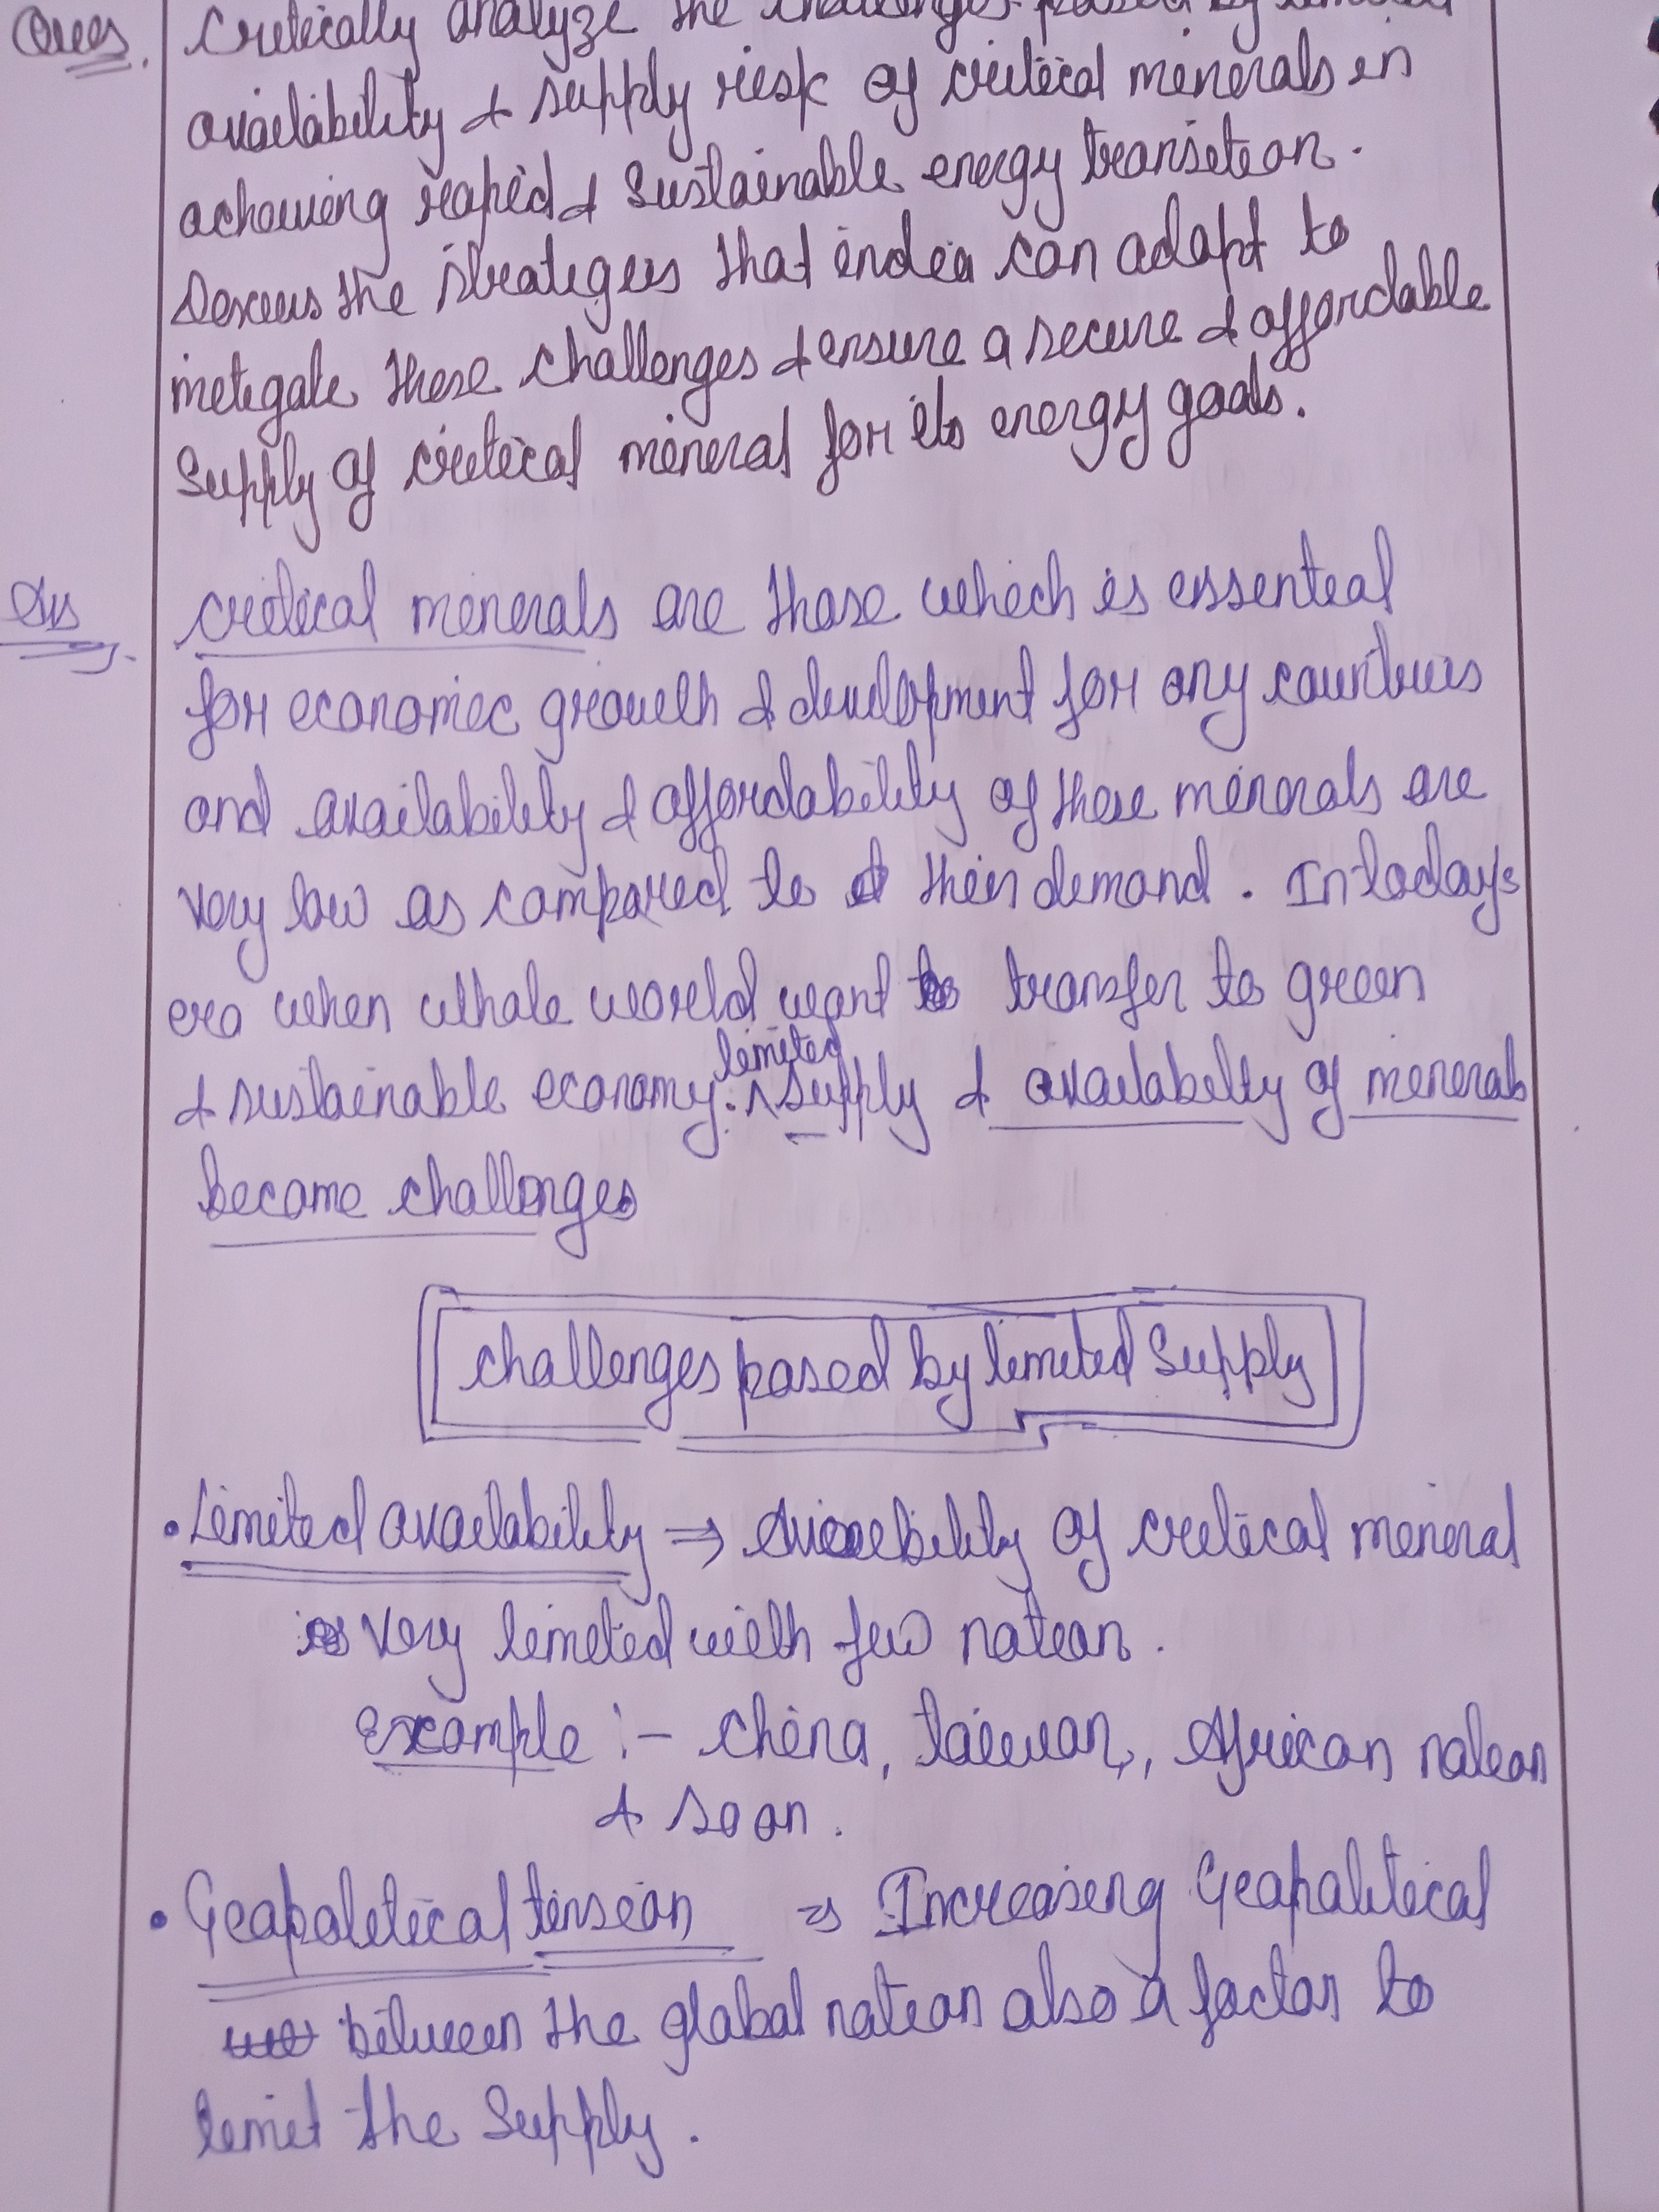 Ques. Critically analyze the challenges posed by limited
availability & supply risk of critical minerals in
achewing rapid & sustainable energy transition.
Discuss the strategies that india can adapt to
mitigate these challenges & ensure a secure & affordable
supply of critical mineral for its energy goals.
Ans. critical minerals are those which is essential
for economic growth & development for any countries
and availability & affordability of these minerals are
very low as compared to their demand. In today's
era when whole world want to transfer to green
& sustainable economy. limited supply & availabilty of minerals
become challenges
challenges posed by limited supply
• Limited availability ⇒ of critical mineral
is very limited with few nation.
Example :- China, Taiwan, African nation
& soon.
• Geopolitical tension ⇒ Increasing Geopolitical
between the global nation also a factor to
limit the supply.